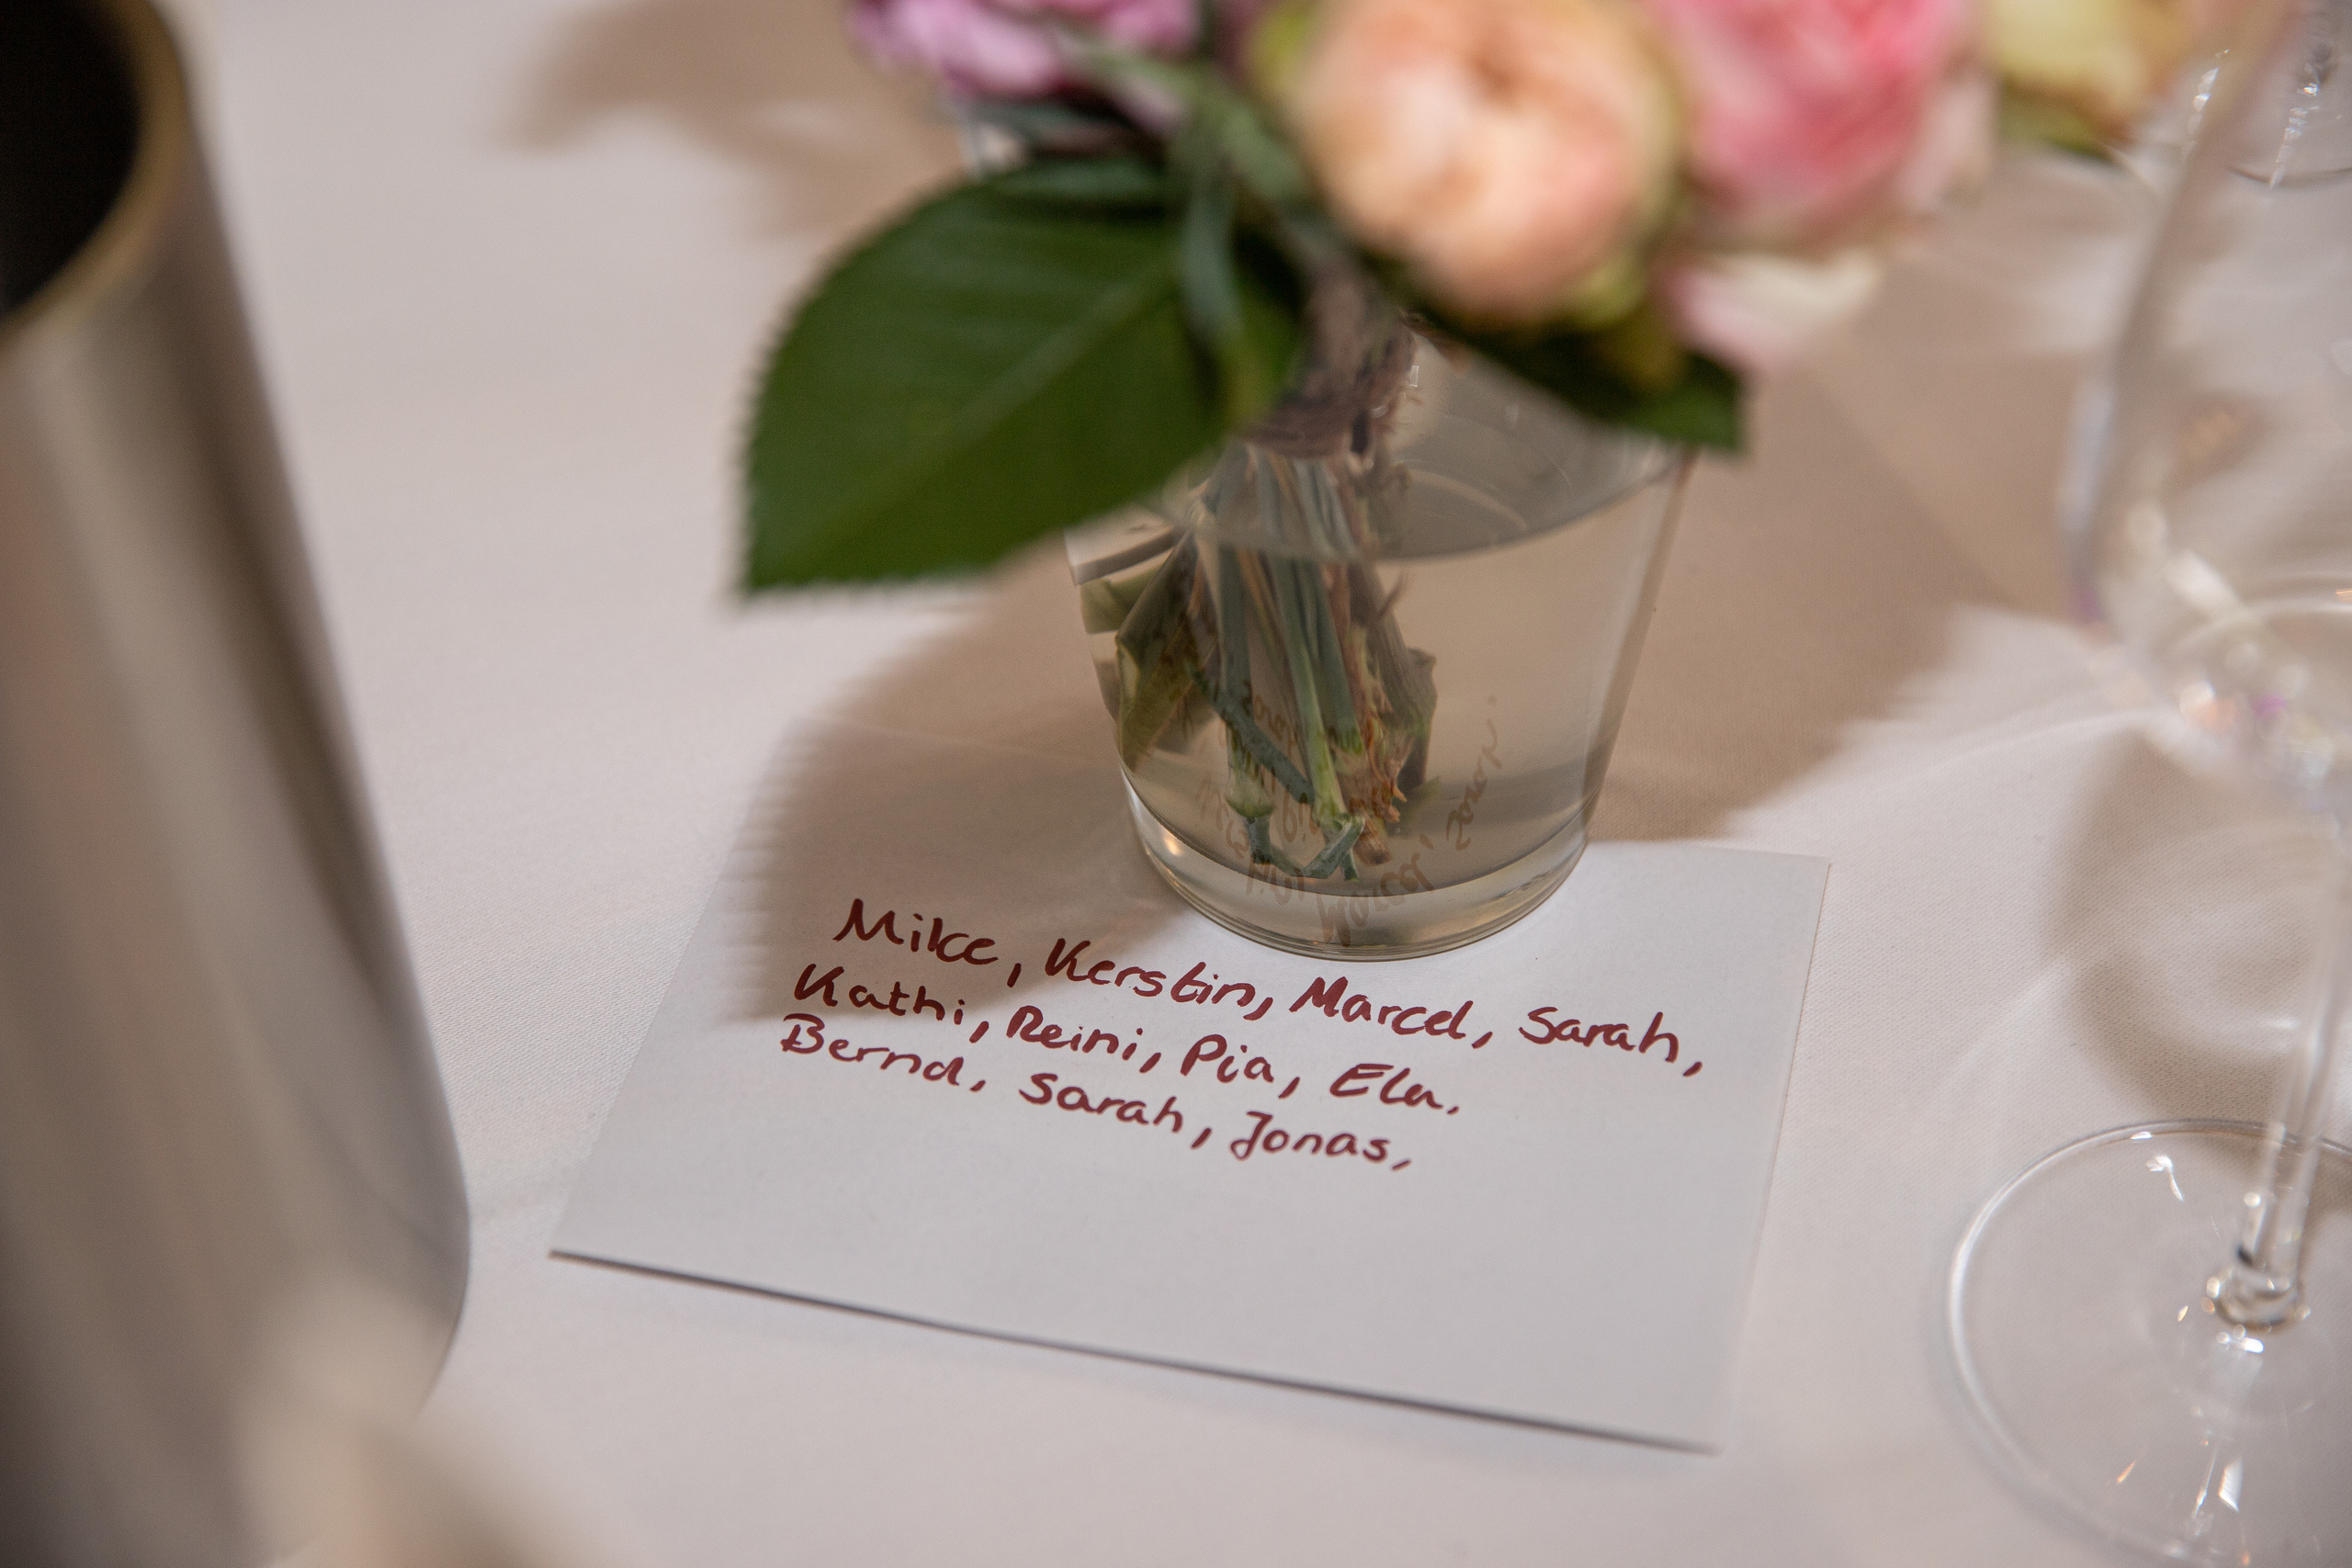 Mike, Kerstin, Marcel, Sarah,
Kathi, Reini, Pia, Ela,
Bernd, Sarah, Jonas,